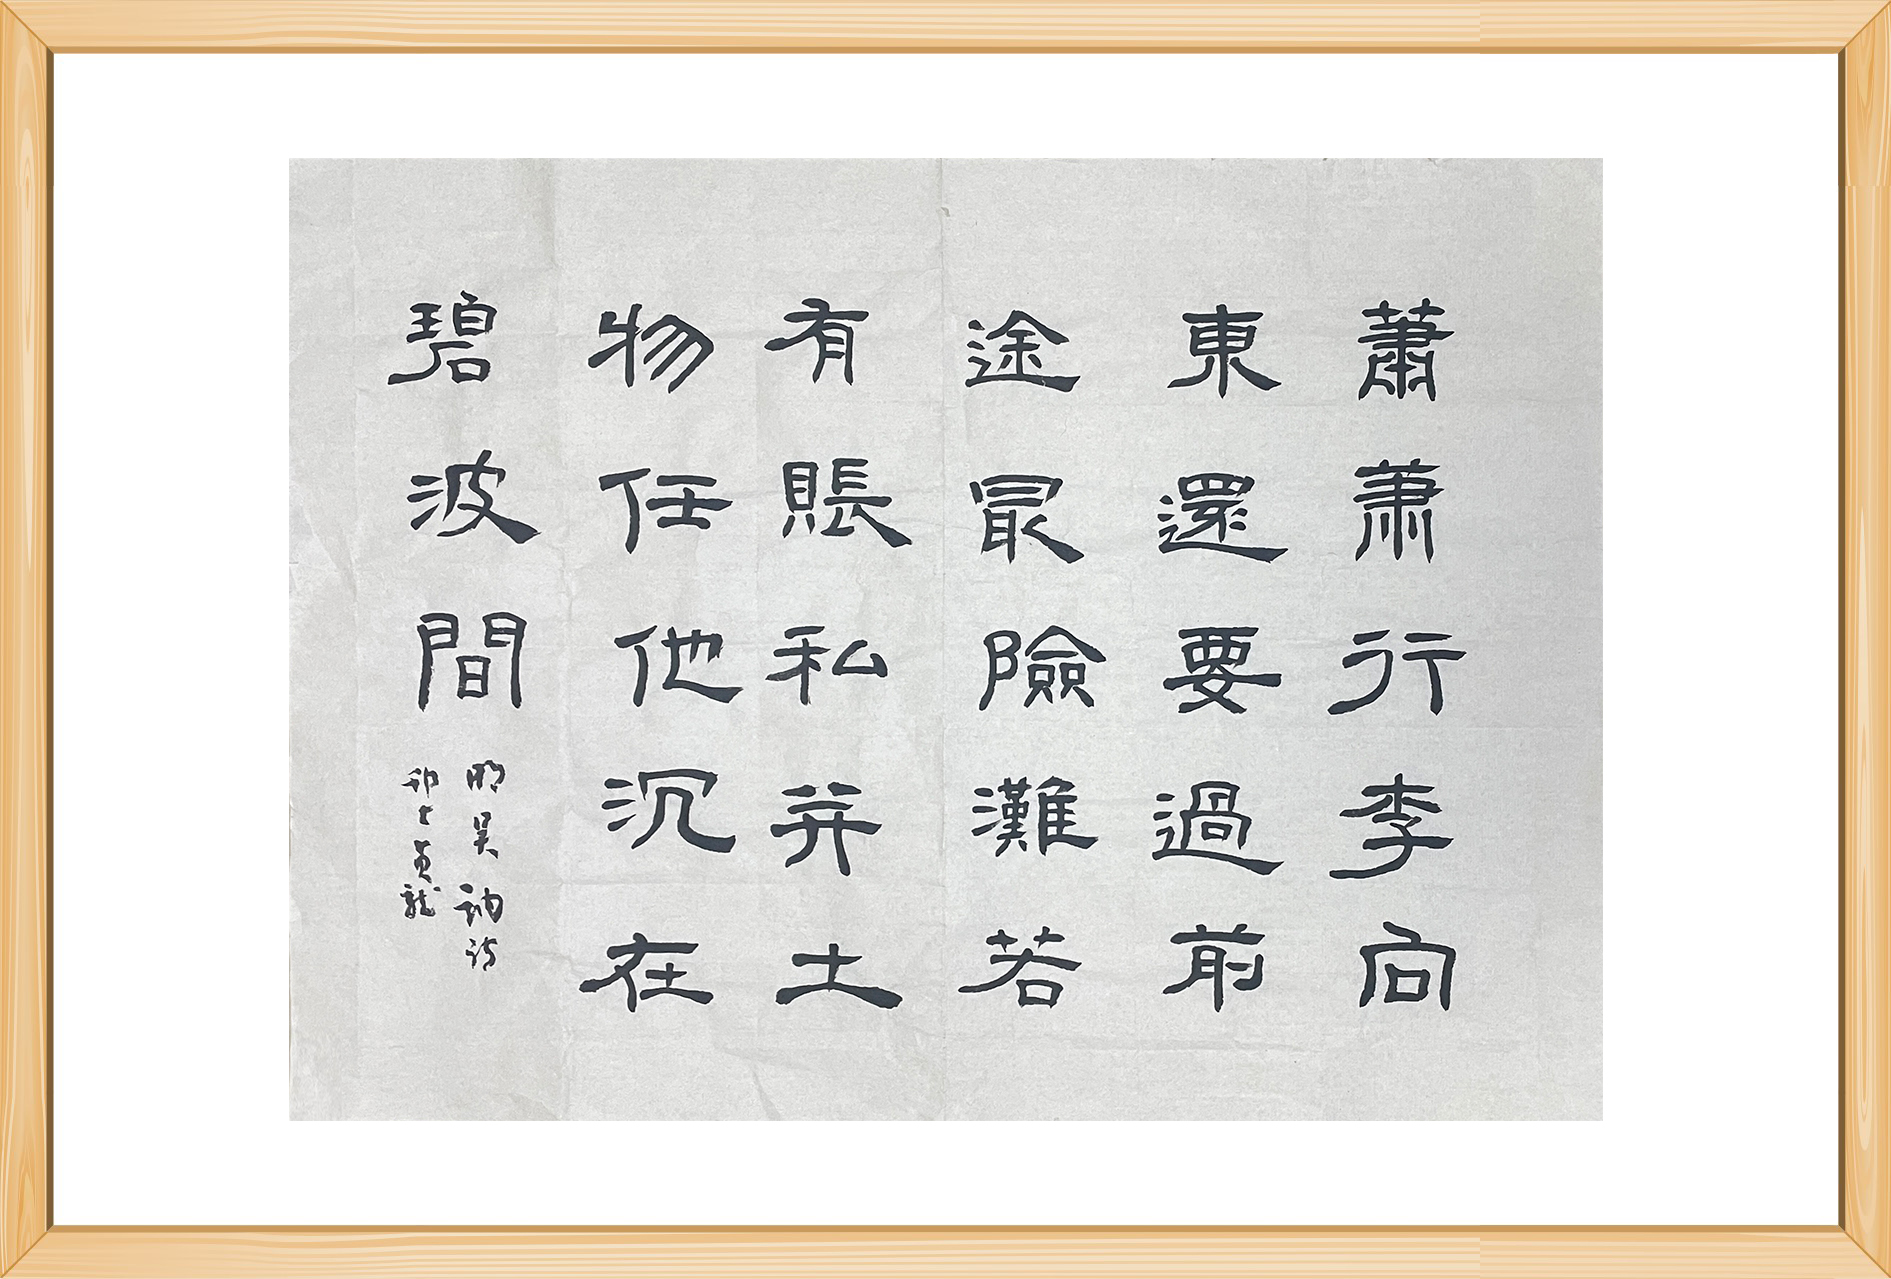 蕭蕭行李向
東還要過前
途冣險灘若
有賬私并土
物任他沉在
碧波間
明吴訥詩